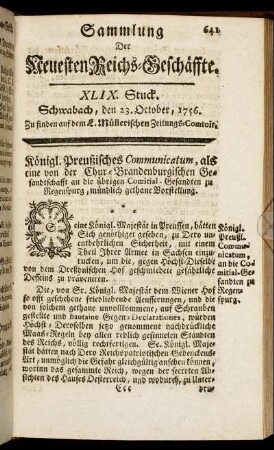 641
Sammlung
Der
Neuesten Reichs-Geschäffte.
XLIX. Stuck.
Schwabach, den 23. October, 1756.
Zu finden auf dem E. Müllerischen Zeitungs-Comtoir.
Königl. Preußisches Communicatum, als
eine von der Chur-Brandenburgischen Ge-
sandschafft an die übrigen Comitial-Gesandten zu
Regenspurg, mündlich gethane Vorstellung.
Seine Königl. Majestät in Preussen, hätten
Sich genöthiget gesehen, zu Dero un-
entbehrlichen Sicherheit, mit einem
Theil Ihrer Armee in Sachsen einzu-
rucken, um die, gegen Höchst-Dieselbe
von dem Dreßdnischen Hof geschmiedete gefährliche
Desseins zu præveniren.
Königl.
Preußl.
Com-
municatum,
an die Co-
mitial-Ge-
sandten zu
Regen-
spurg.
Die, von Sr. Königl. Majestät dem Wiener Hof
so offt geschehene friedliebende Aeusserungen, und die
von solchem gethane unvollkommene, auf Schrauben
gestellte und hautaine Gegen-Declarationes, würden
Höchst-Deroselben jetzo genommene nachdrückliche
Maas-Regeln bey allen redlich gesinnten Standen
des Reichs, völlig rechtfertigen. Se. Königl. Maje-
stät hätten nach Dero Reichspatriotischen Gedenckens-
Art, unmöglich die Gefahr gleichgültig ansehen können,
worinn das gesammte Reich, wegen der secreten Ab-
sichten des Hauses Oesterreich, und wodurch, zu Unter-
Ccc
dru-